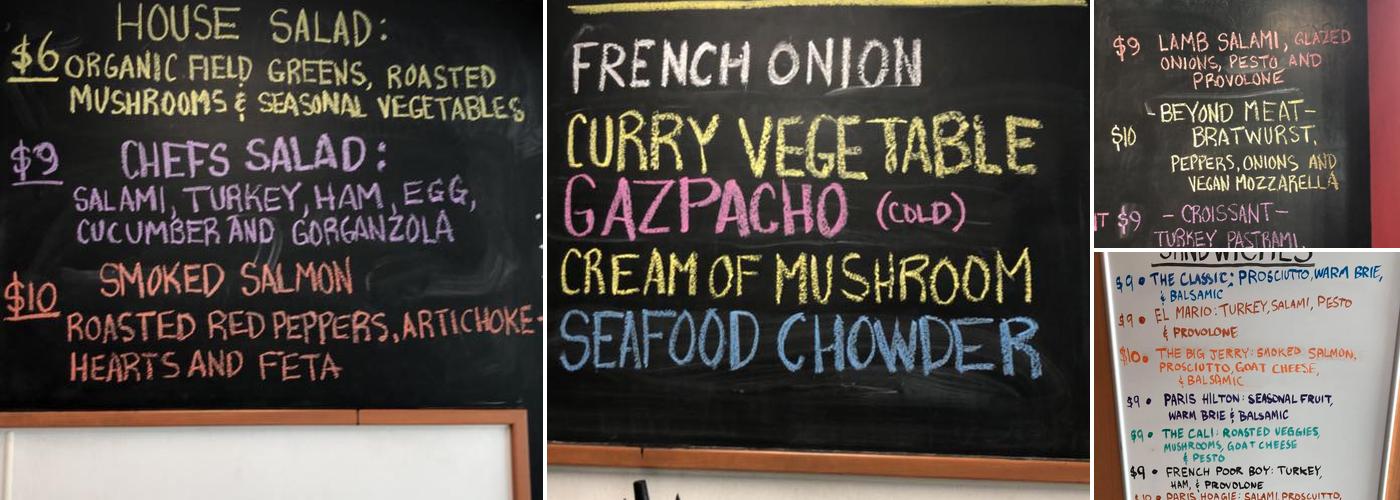 HOUSE SALAD:
$6 ORGANIC FIELD GREENS, ROASTED
MUSHROOMS & SEASONAL VEGETABLES
$9 CHEFS SALAD:
SALAMI, TURKEY, HAM, EGG,
CUCUMBER AND GORGANZOLA
$10 SMOKED SALMON
ROASTED RED PEPPERS, ARTICHOKE
HEARTS AND FETA
FRENCH ONION
CURRY VEGETABLE
GAZPACHO (COLD)
CREAM OF MUSHROOM
SEAFOOD CHOWDER
$9 LAMB SALAMI, GLAZED
ONIONS, PESTO AND
PROVOLONE
- BEYOND MEAT-
$10 BRATWURST,
PEPPERS, ONIONS AND
VEGAN MOZZARELLA
$9 - CROISSANT-
TURKEY PASTRAMI,
SANDWICHES
$9 • THE CLASSIC: PROSCIUTTO, WARM BRIE,
& BALSAMIC
$9 • EL MARIO: TURKEY, SALAMI, PESTO
& PROVOLONE
$10 • THE BIG JERRY: SMOKED SALMON,
PROSCIUTTO, GOAT CHEESE,
& BALSAMIC
$9 • PARIS HILTON: SEASONAL FRUIT,
WARM BRIE & BALSAMIC
$9 • THE CALI: ROASTED VEGGIES,
MUSHROOMS, GOAT CHEESE
& PESTO
$9 • FRENCH POOR BOY: TURKEY,
HAM, & PROVOLONE
$10 • PARIS HOAGIE: SALAMI PROSCUITTO,